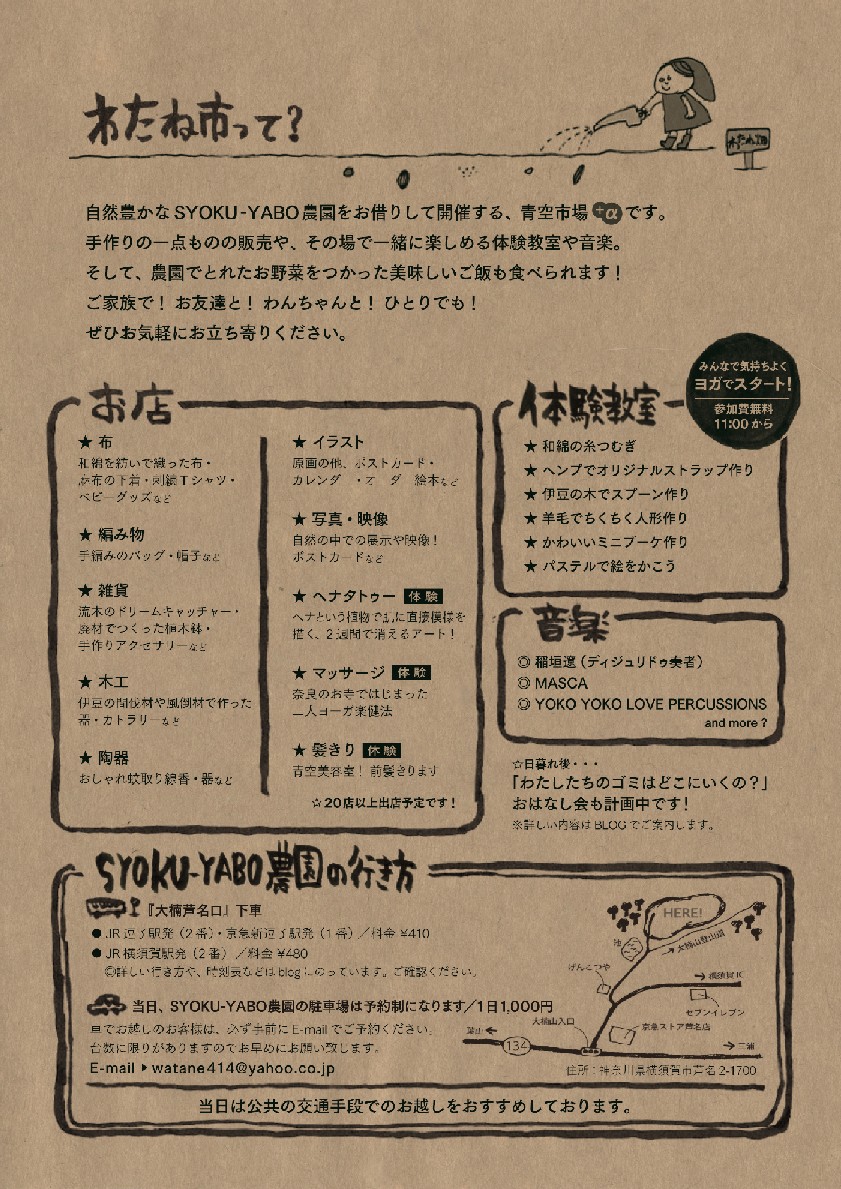 わたね市って?
わたね市
自然豊かなSYOKU-YABO農園をお借りして開催する、青空市場+αです。
手作りの一点ものの販売や、その場で一緒に楽しめる体験教室や音楽。
そして、農園でとれたお野菜をつかった美味しいご飯も食べられます!
ご家族で! お友達と! わんちゃんと! ひとりでも!
ぜひお気軽にお立ち寄りください。
お店
★ 布
和綿を紡いで織った布・
麻布の下着・刺繍Tシャツ・
ベビーグッズなど
★ 編み物
手編みのバッグ・帽子など
★ 雑貨
流木のドリームキャッチャー・
廃材でつくった植木鉢・
手作りアクセサリーなど
★ 木工
伊豆の間伐材や風倒材で作った
器・カトラリーなど
★ 陶器
おしゃれ蚊取り線香・器など
★ イラスト
原画の他、ポストカード・
カレンダー・オーダー絵本など
★ 写真・映像
自然の中での展示や映像!
ポストカードなど
★ ヘナタトゥー 体験
ヘナという植物で肌に直接模様を
描く、2週間で消えるアート!
★ マッサージ 体験
奈良のお寺ではじまった
二人ヨーガ楽健法
★ 髪きり 体験
青空美容室! 前髪きります
☆20店以上出店予定です!
体験教室
みんなで気持ちよく
ヨガでスタート!
参加費無料
11:00から
★ 和綿の糸つむぎ
★ ヘンプでオリジナルストラップ作り
★ 伊豆の木でスプーン作り
★ 羊毛でちくちく人形作り
★ かわいいミニブーケ作り
★ パステルで絵をかこう
音楽
◎ 稲垣遼(ディジュリドゥ奏者)
◎ MASCA
◎ YOKO YOKO LOVE PERCUSSIONS
and more ?
☆日暮れ後・・・
「わたしたちのゴミはどこにいくの?」
おはなし会も計画中です!
※詳しい内容はBLOGでご案内します。
SYOKU-YABO農園の行き方
『大楠芦名口』下車
● JR逗子駅発(2番)・京急新逗子駅発(1番)/料金 ¥410
● JR横須賀駅発(2番)/料金 ¥480
◎詳しい行き方や、時刻表などはblogにのっています。ご確認ください。
当日、SYOKU-YABO農園の駐車場は予約制になります/1日1,000円
車でお越しのお客様は、必ず事前にE-mailでご予約ください。
台数に限りがありますのでお早めにお願い致します。
E-mail ▶ watane414@yahoo.co.jp
HERE!
池
大楠山登山道
げんこつや
→ 横須賀IC
セブンイレブン
大楠山入口
京急ストア芦名店
葉山 ←
134
→ 三浦
住所:神奈川県横須賀市芦名2-1700
当日は公共の交通手段でのお越しをおすすめしております。